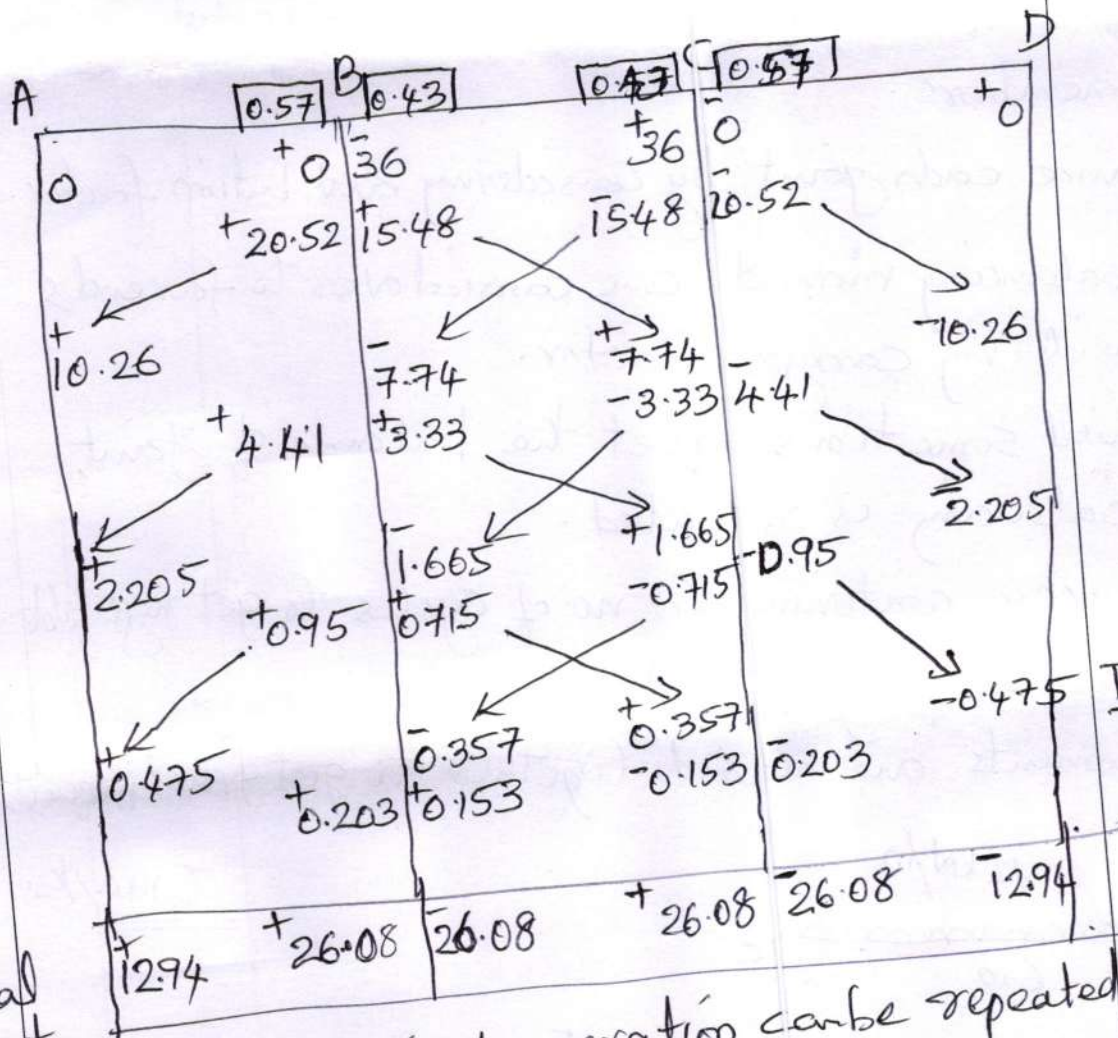 A B C D
0.57 0.43 0.43 0.57
0 +0 -36 +36 -0 +0
+20.52 +15.48 -15.48 -20.52
+10.26 -7.74 +7.74 -10.26
+4.41 +3.33 -3.33 -4.41
+2.205 -1.665 +1.665 -2.205
+0.95 +0.715 -0.715 -0.95
+0.475 -0.357 +0.357 -0.475
+0.203 +0.153 -0.153 -0.203
+12.94 +26.08 -26.08 +26.08 -26.08 -12.94
can be repeated